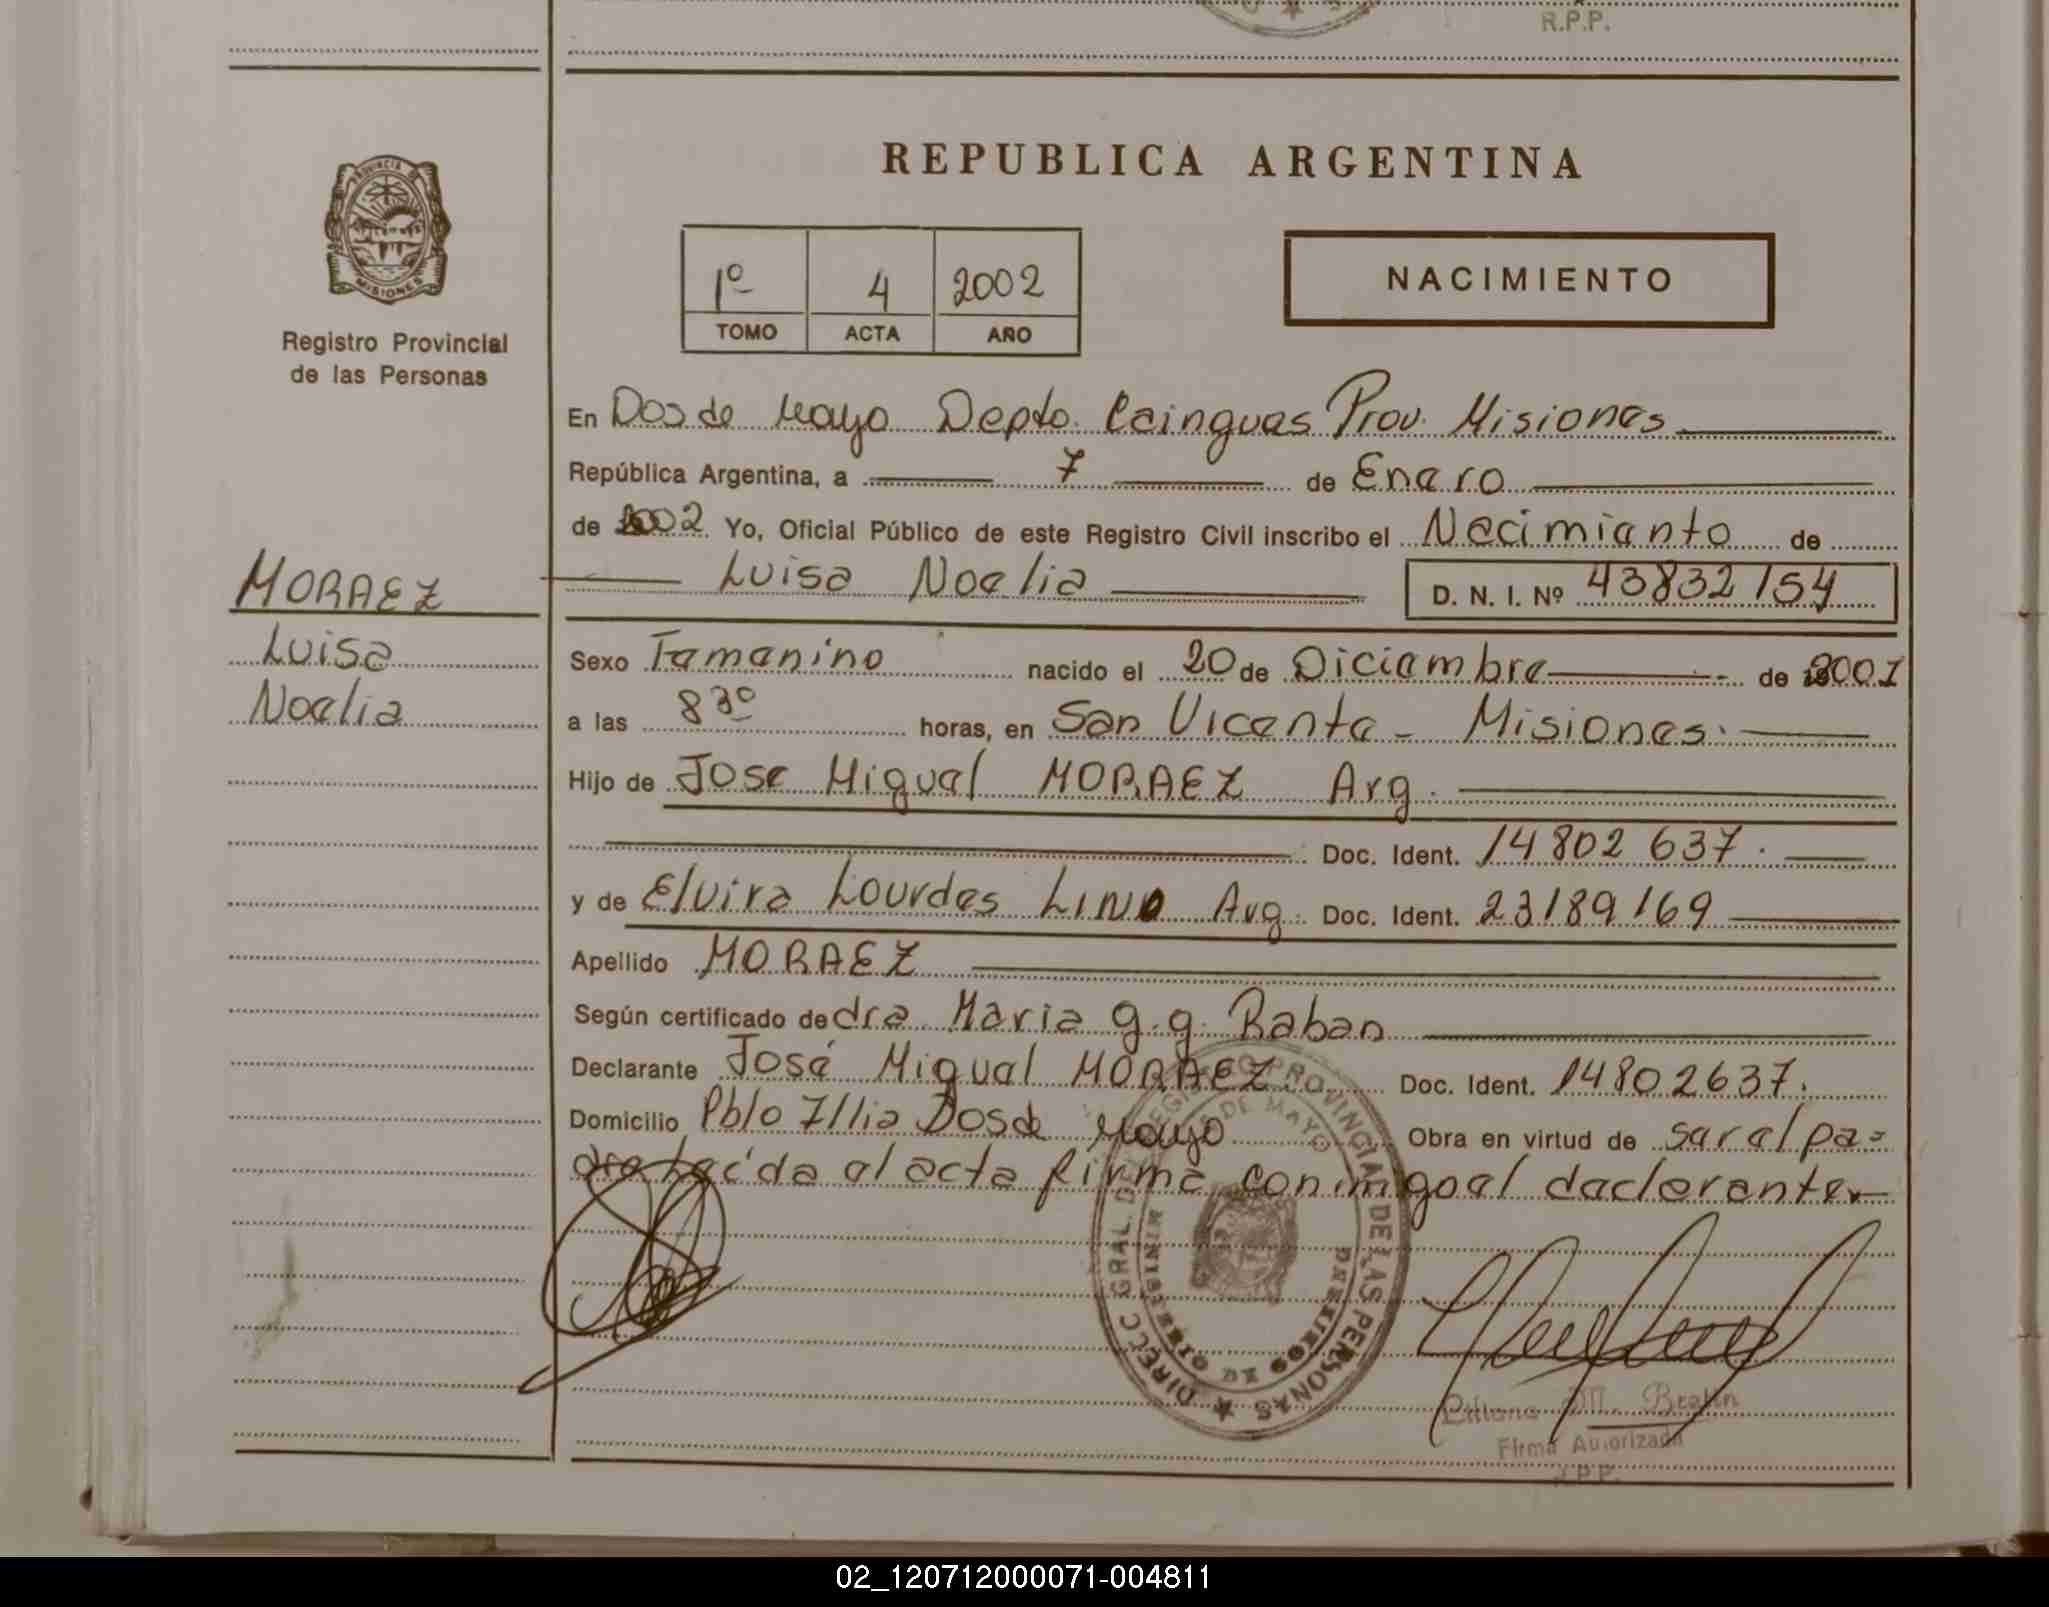 R.P.P.
PROVINCIA DE
MISIONES
Registro Provincial
de las Personas
MORAEZ
Luisa
Noelia
REPUBLICA ARGENTINA
1º 4 2002
TOMO ACTA AÑO
NACIMIENTO
En Dos de Mayo Depto. Cainguas Prov. Misiones
República Argentina, a 7 de Enero
de 2002 Yo, Oficial Público de este Registro Civil inscribo el Nacimiento de
Luisa Noelia D. N. I. Nº 43832154
Sexo Femenino nacido el 20 de Diciembre de 2001
a las 8 30 horas, en San Vicente - Misiones.
Hijo de Jose Miguel MORAEZ Arg.
Doc. Ident. 14802637.
y de Elvira Lourdes LINO Arg. Doc. Ident. 23189169
Apellido MORAEZ
Según certificado de dra Maria g.g. Raban
Declarante José Miguel MORAEZ. Doc. Ident. 14802637.
Domicilio Pblo Illia Dos de Mayo Obra en virtud de ser el pa=
dre leída el acta firma conmigo el declarante
DIRECC GRAL. DEL REGISTRO PROVINCIAL DE LAS PERSONAS
DE MAYO
MINISTERIO DE GOBIERNO
Liliana M.
Firma Autorizada
R.P.P.
02_120712000071-004811